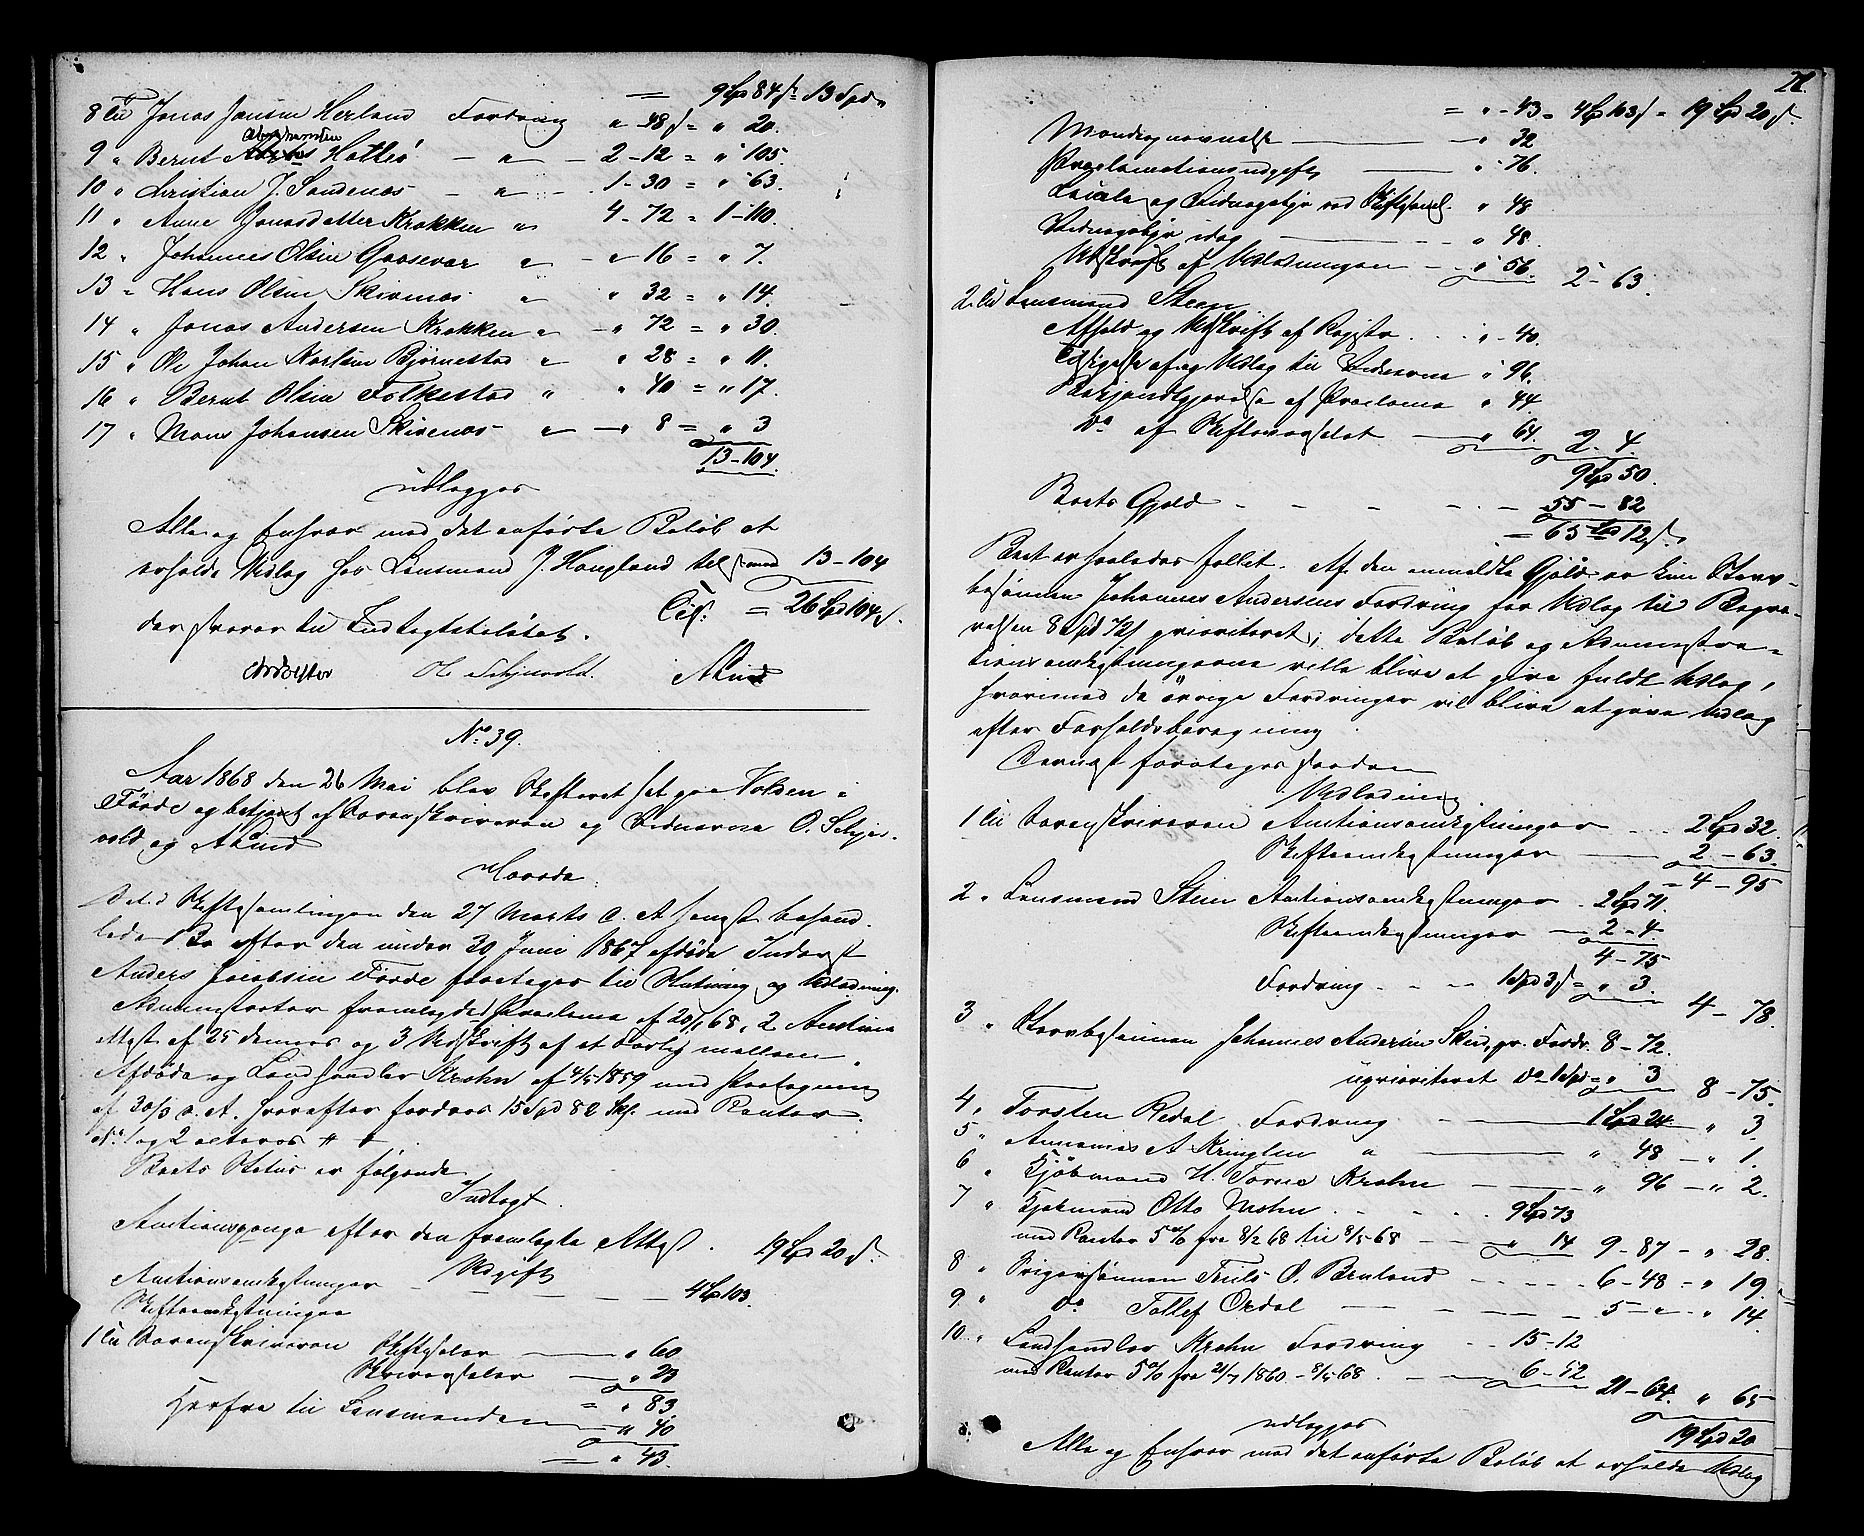 = 9 Spd 84 s 13 Spd "
8 Til Jonas Jansen Herland Fordring " 48 s = " 20.
Abrahamsen
9 " Bernt Hatlø — " — 2 - 12 = " 105.
10 " Christian J. Sandenæs — " — 1 - 30 = " 63.
11 " Anne Jonasdatter Krakken " 4 - 72 = 1 - 110.
12 " Johannes Olsen Gaasevær " — " 16 = " 7.
13 " Hans Olsen Skivenæs " " 32 = " 14.
14 " Jonas Andersen Krakken " — " 72 = " 30.
15 " Ole Johan Bjørnestad " " 28 = " 11.
16 " Bernt Olsen Folkestad " " 40 = " 17.
17 " Mons Johansen Skivenæs " — " 8 = " 3
13 - 104.
udlægges
Alle og Enhver med det anførte Beløb at
erholde Udlæg hos Lensmand J. Haugland tilsammen 13 - 104
Tils. = 26 Spd 104 s.
der svarer til Indtægtsbeløbet.
Ole Schjervold.
No 39.
Aar 1868 den 26 Mai blev Skifteret sat paa Valden i
Førde og betjent af Sorenskriveren og Vidnerne O. Schjer-
vold og
Hvorda:
Ved Skiftesamlingen den 27 Marts d. A. sengst behand-
lede Bo efter den under 30 Juni 1867 afdøde Inderst
Anders Jacobsen Førde foretoges til Slutning og Udlodning.
Administrator fremlagde 1 Proclama af 20/1 68, 2 Auctions
Attest af 25 dennes og 3 Udskrift af et Forlig mellem
Afdøde og Landhandler Krohn af 4/5 1859 med Paategning
af 30/3 d. A. hvorefter fordres 15 Spd 82 Sk. med Renter.
No 1 og 2 acteres
Boets Status er følgende
Indtægt.
Auctionspenge efter den fremlagte Attest . 19 Spd 20 s.
Udgift
Auctionsomkostninger — — — 4 Spd 103.
Skifteomkostninger
1 Til Sorenskriveren Skiftesalær — " 60
Skriversalær — " 23
= " 83
Herfra til Lensmanden — " 40
= " 43.
71.
= " - 43 = 4 Spd 103 s = 19 Spd 20 s.
Mandsopnævnelse — " 32
Proclamationsudgift — " 76.
Locale og Vidnegebyr ved Skiftesaml. " 48
Vidnegebyr idag — " 48.
Udskrift af Udlodningen — " 56. 2 - 63.
2 Til Lensmand Steen
Afhold og Udskrift af Registr. . . " - 40.
Tilsigelse af og Udlæg til Vidnerne " 96.
Bekjendtgjørelse af Proclama " 44
Do af Skiftevarselet — " 64. 2 - 4.
9 Spd 50.
Boets Gjeld - - - - 55 - 82
= 65 Spd 12 s.
Boet er saaledes fallit. Af den anmeldte Gjeld er kun Sterv-
bosønnen Johannes Andersens Fordring for Udlæg til Begra-
velsen 8 Spd 72 s prioriteret; dette Beløb og Administra-
tionsomkostningerne ville blive at give fuldt Udlæg,
hvorimod de øvrige Fordringer vil blive at gives Udlæg
efter Forholdsberegning.
Dernæst foretoges saadan
Udlodning
1 Til Sorenskriveren Auctionsomkostninger . . . 2 Spd 32.
Skifteomkostninger — 2 - 63.
= 4 - 95
2 " Lensmand Steen Auctionsomkostninger . 2 Spd 71.
Skifteomkostninger — 2 - 4.
4 - 75
Fordring . . . 1 Spd 3 s = " 3.
4 - 78.
3 " Stervbosønnen Johannes Andersen pr. Fordr. 8 - 72.
uprioriteret Do 1 Spd = " 3
8 - 75.
4 " Torsten Redal . Fordring — 1 Spd 24 " 3
5 " A Kringlen " — " 48 - " 1.
6 " Kjøbmand H. Krohn — " 96 - " 2.
7 " Kjøbmand Otto . . . 9 Spd 73
med Renter 5 % fra 8/2 68 til 8/5 68 — " 14 9 - 87 - " 28.
8 " Truls O. Bruland — 6 - 48 - " 19.
9 " Do Tollef Ordal — 5 - " - " 14.
10 " Landhandler Krohn Fordring . . 15 - 12
med Renter 5 % fra 21/7 1860 - 8/5 68 . — 6 - 52
21 - 64. " 65
19 Spd 20
udlægges
Alle og Enhver med det anførte Beløb at erholde Udlæg